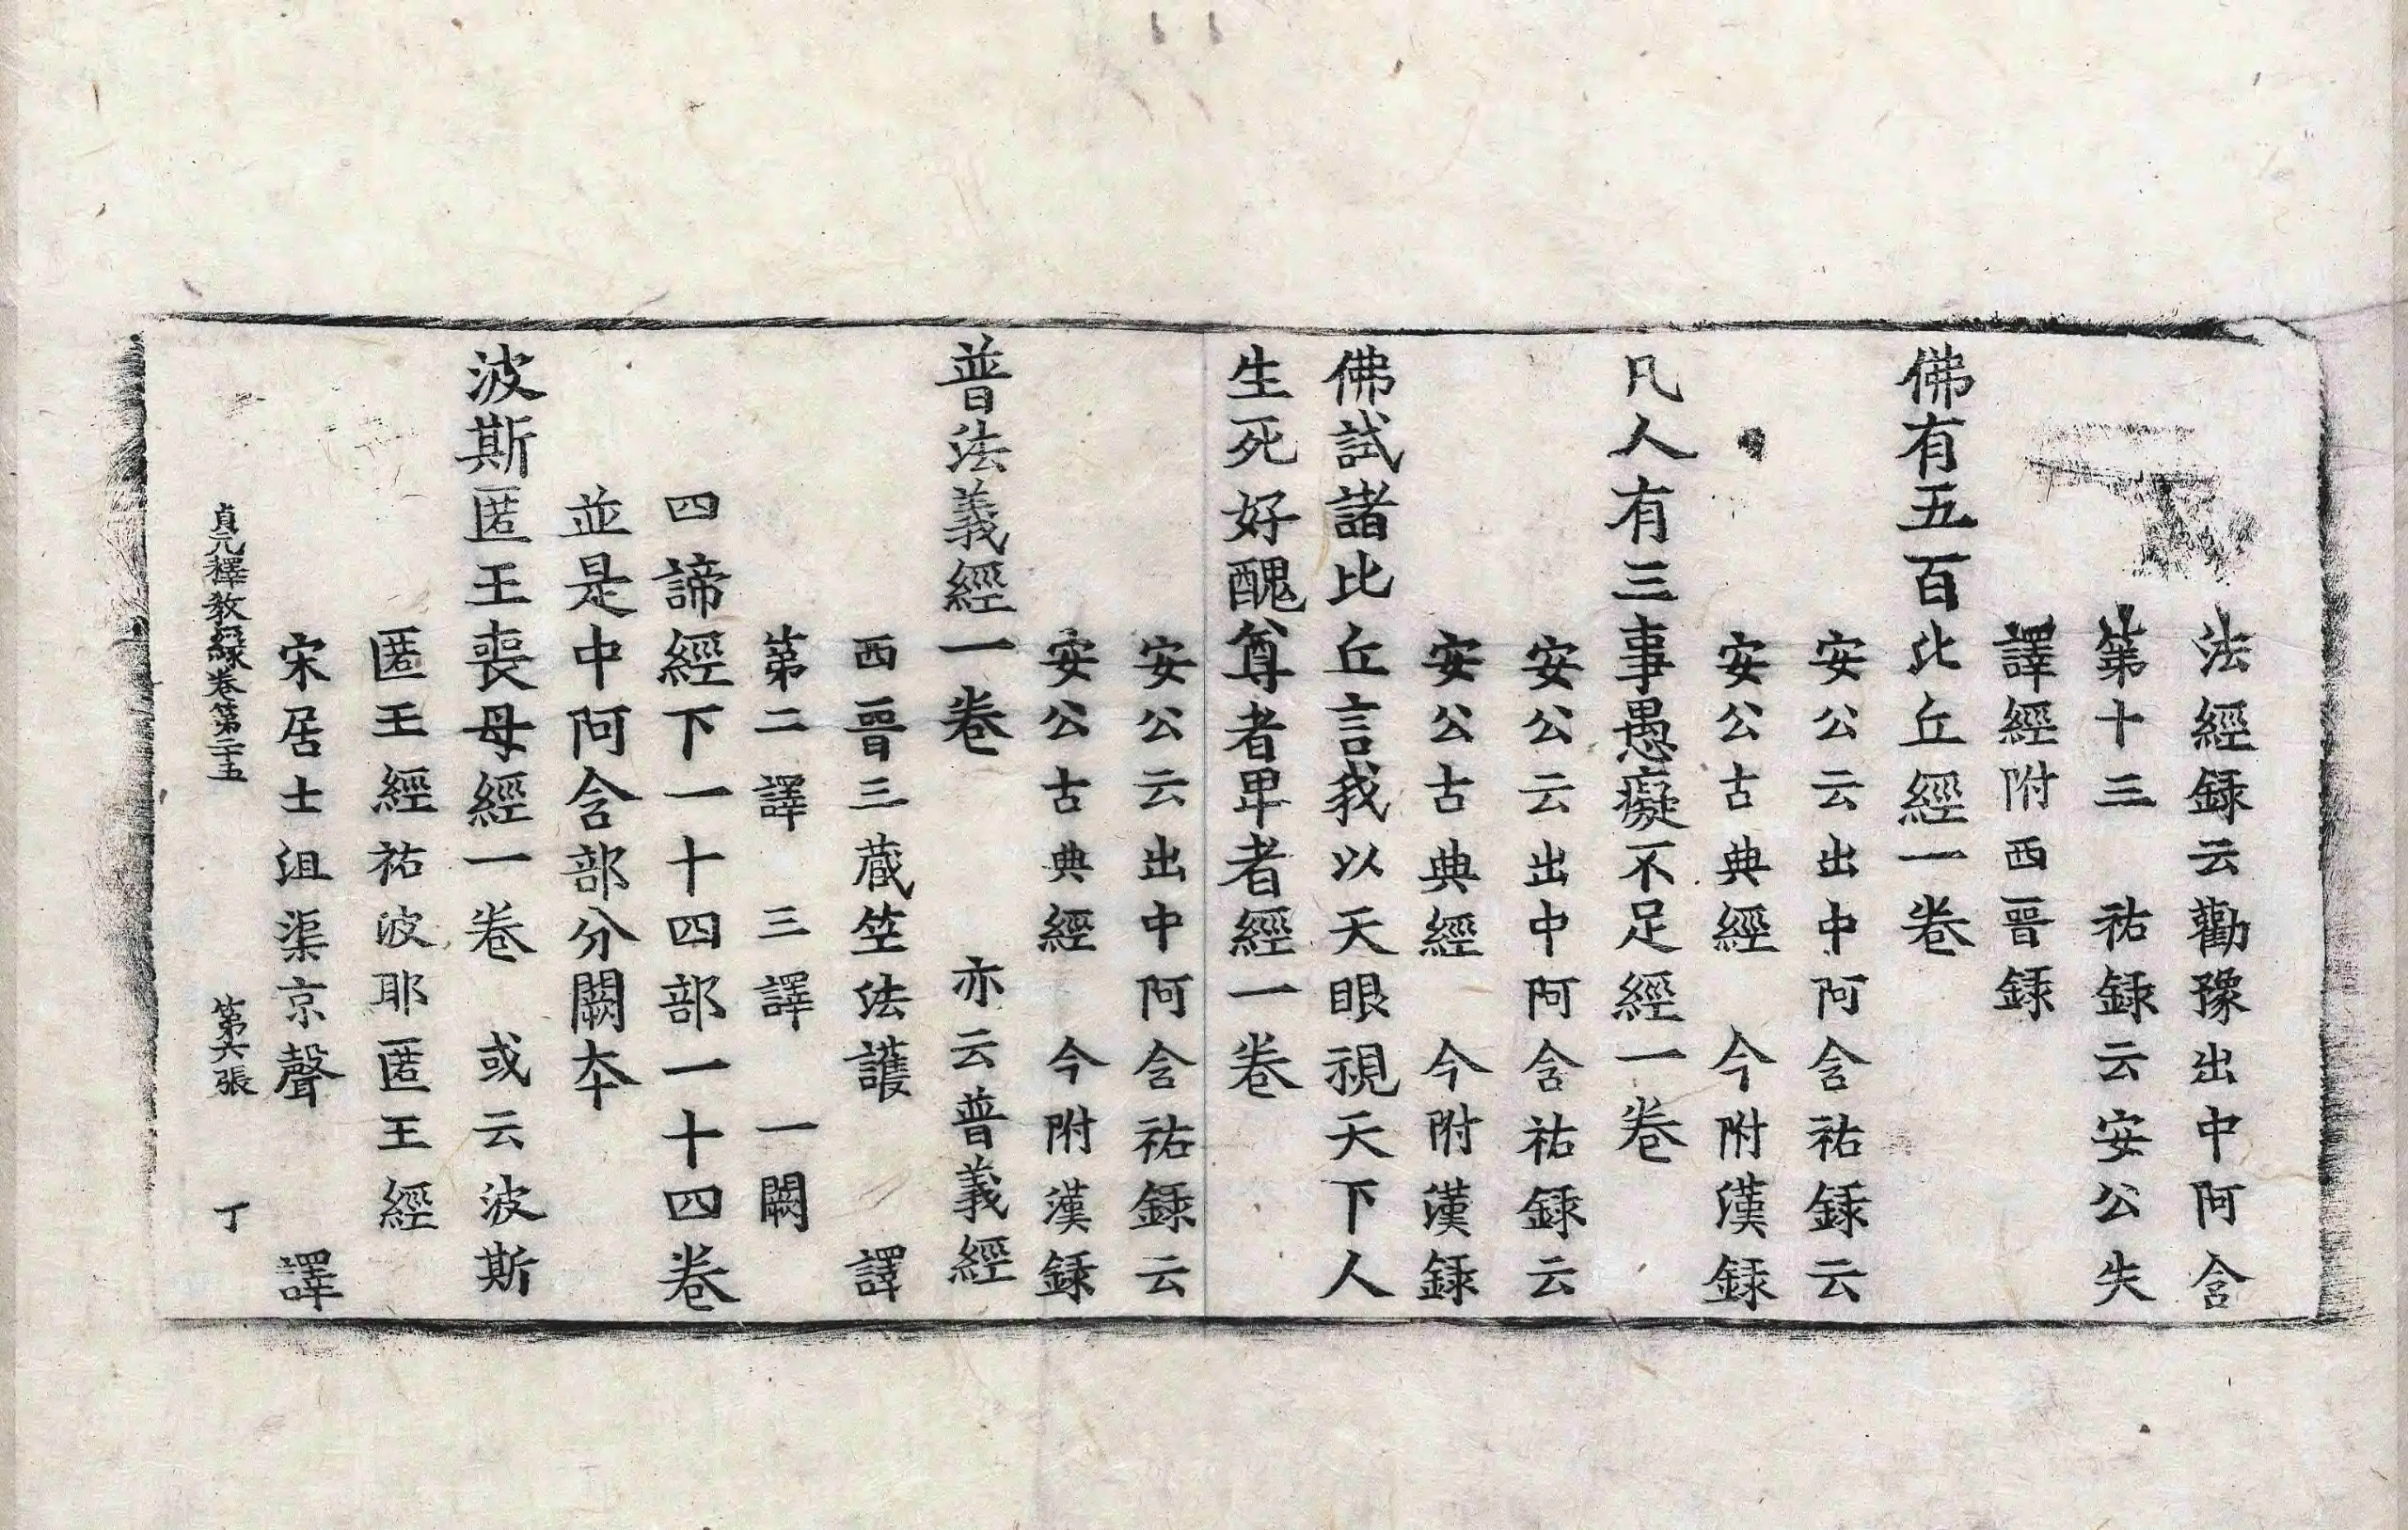 法經録云勸豫出中阿含
第十三　祐録云安公失
譯經附西晉録
佛有五百比丘經一卷
安公云出中阿含祐録云
安公古典經　今附漢録
凡人有三事愚癡不足經一卷
安公云出中阿含祐録云
安公古典經　今附漢録
佛試諸比丘言我以天眼視天下人
生死好醜尊者卑者經一卷
安公云出中阿含祐録云
安公古典經　今附漢録
普法義經一卷　亦云普義經
西晉三藏竺法護　譯
第二譯　三譯　一闕
四諦經下一十四部一十四卷
並是中阿含部分闕本
波斯匿王喪母經一卷　或云波斯
匿王經祐波耶匿王經
宋居士沮渠京聲　譯
貞元釋教録卷第二十五　第六張　丁